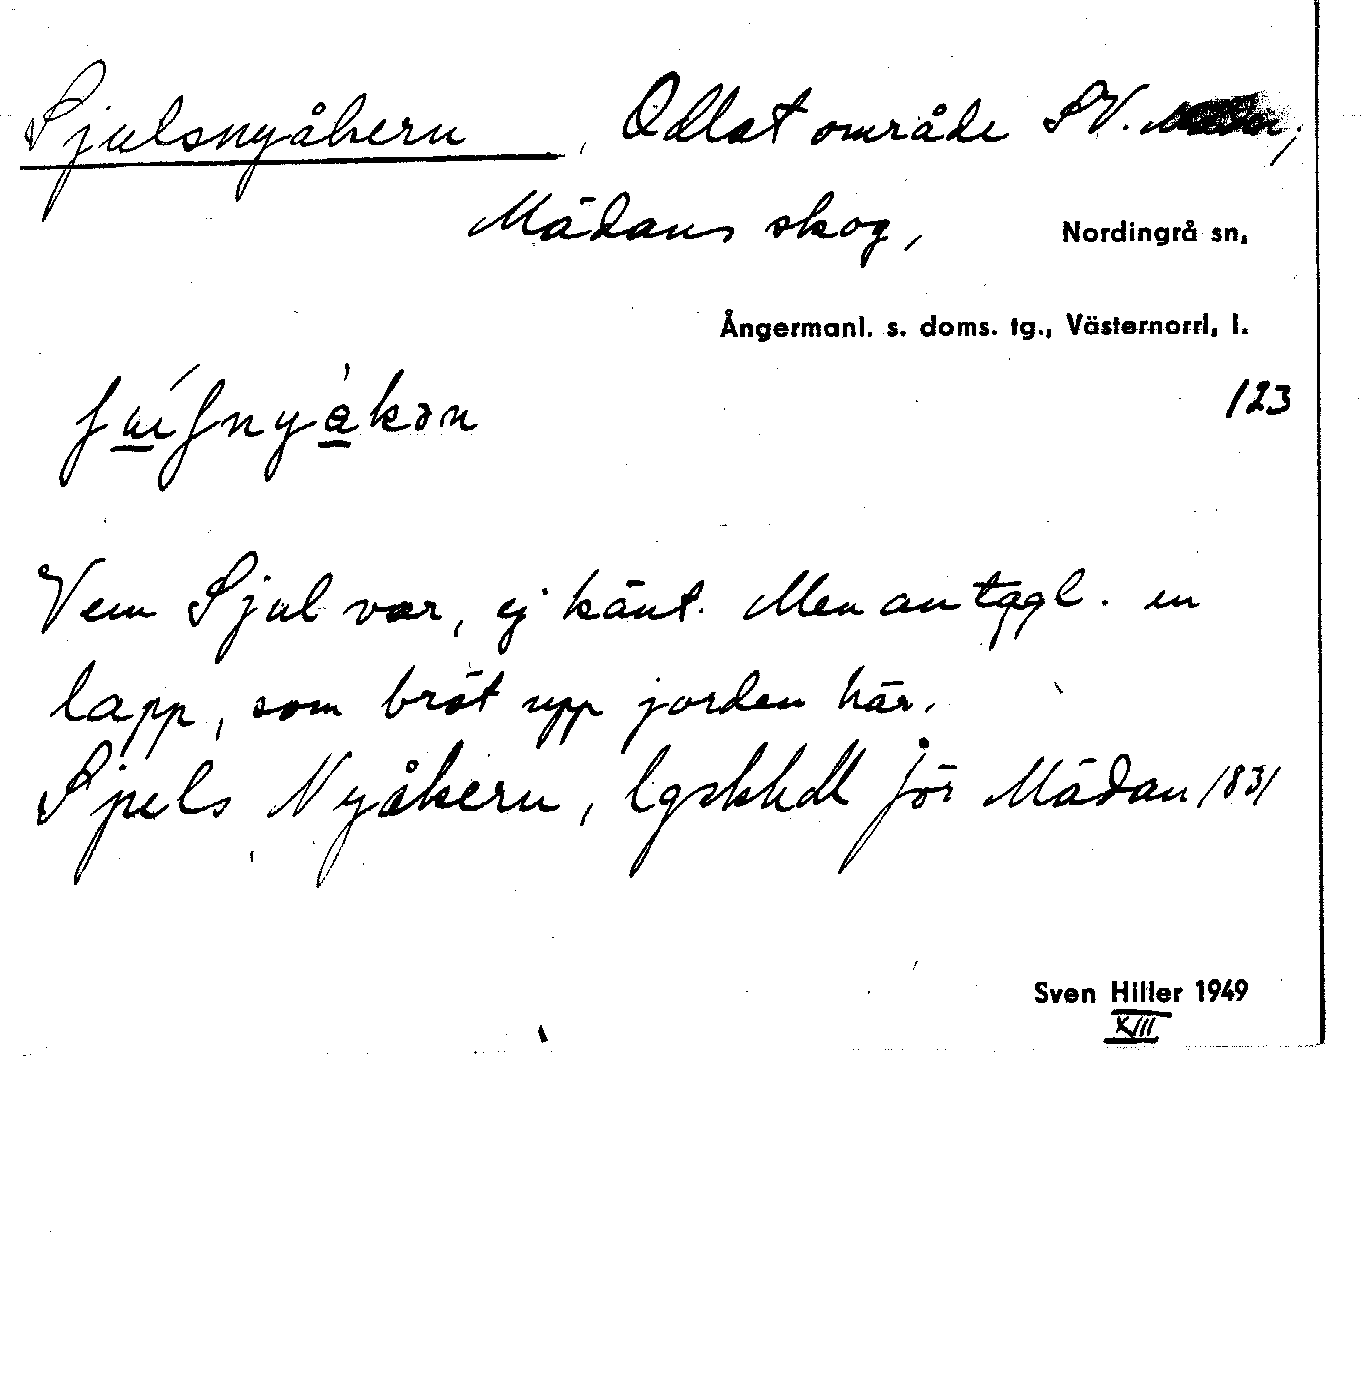 Sjulsnyåkern, Odlat område SV.
Mädans skog, Nordingrå sn,
Ångermanl. s. doms. tg., Västernorrl. l.
123
Vem Sjul var, ej känt. Men antagl. en
lapp, som bröt upp jorden här.
Sjuls Nyåkern, lgskhdl för Mädan 1831
Sven Hiller 1949
XIII